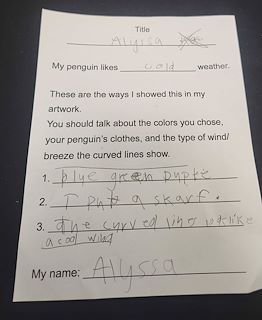 Title
Alyssa
My penguin likes cold weather.
These are the ways I showed this in my
artwork.
You should talk about the colors you chose,
your penguin's clothes, and the type of wind/
breeze the curved lines show.
1. blue green purple
2. I put a skarf.
3. the curved lins look like
a cool wind
My name: Alyssa